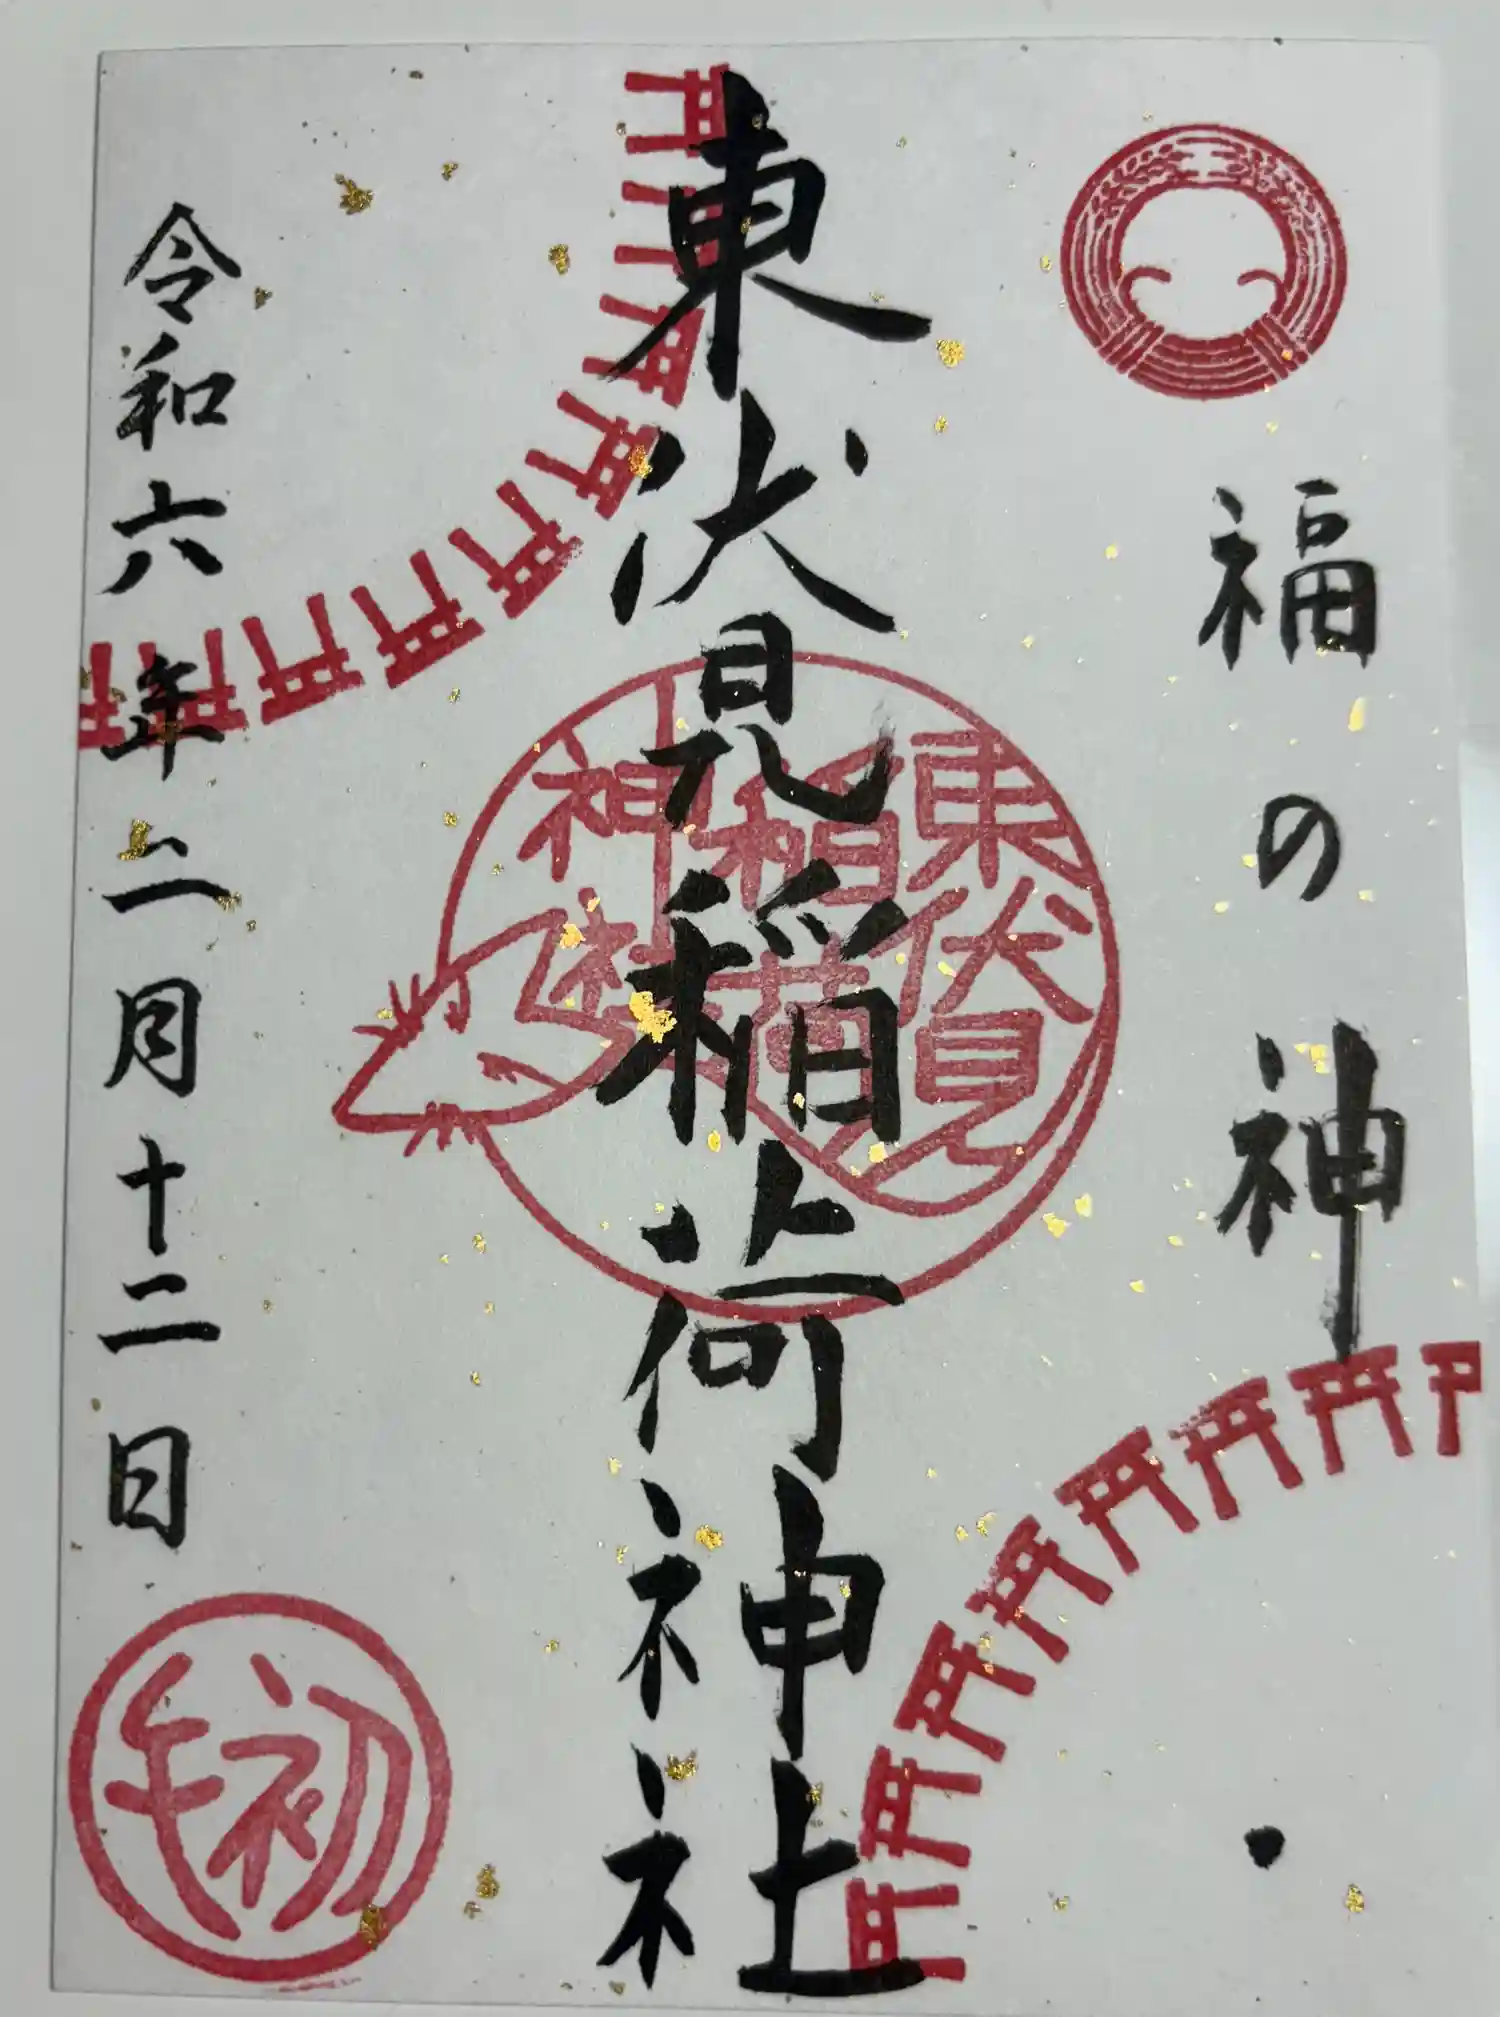 福の神
東伏見稲荷神社
東伏見
稲荷
神社
令和六年二月十二日
初